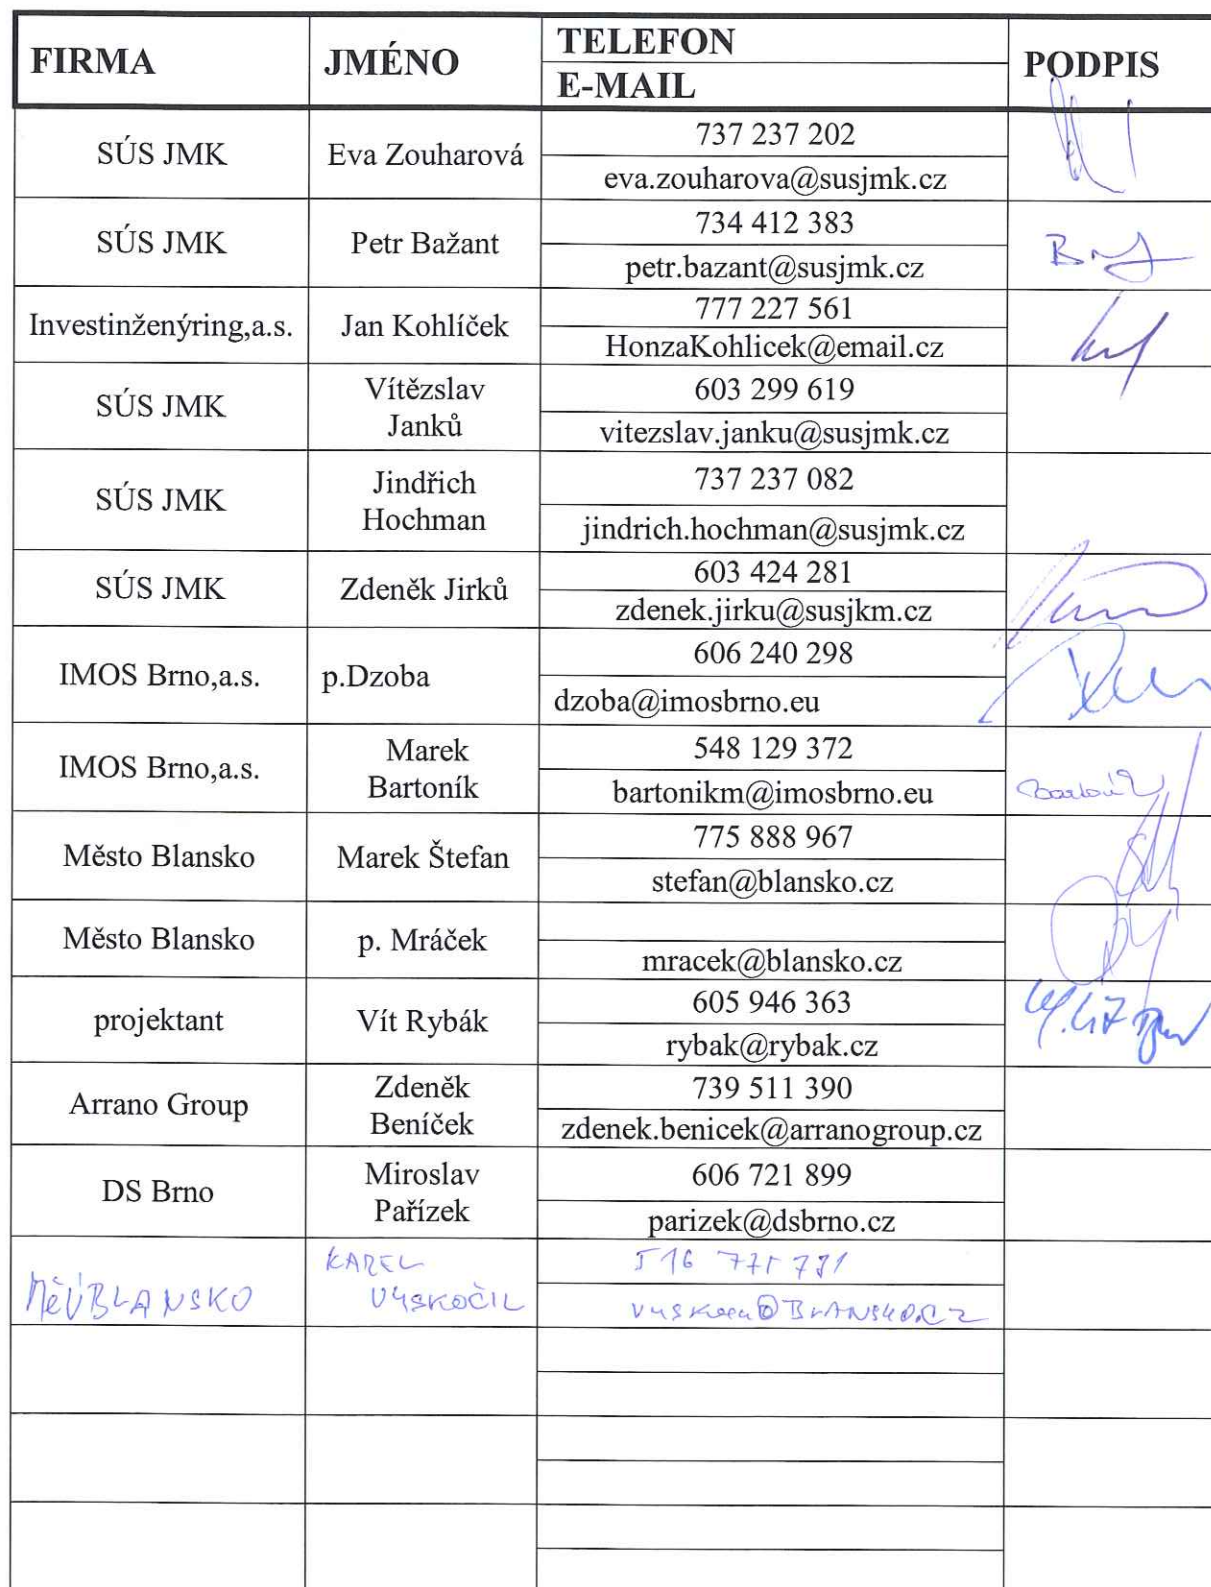 FIRMA JMÉNO TELEFON PODPIS
E-MAIL
SÚS JMK Eva Zouharová 737 237 202
eva.zouharova@susjmk.cz
SÚS JMK Petr Bažant 734 412 383
petr.bazant@susjmk.cz
Investinženýring,a.s. Jan Kohlíček 777 227 561
HonzaKohlicek@email.cz
SÚS JMK Vítězslav 603 299 619
Janků vitezslav.janku@susjmk.cz
SÚS JMK Jindřich 737 237 082
Hochman jindrich.hochman@susjmk.cz
SÚS JMK Zdeněk Jirků 603 424 281
zdenek.jirku@susjkm.cz
IMOS Brno,a.s. p.Dzoba 606 240 298
dzoba@imosbrno.eu
IMOS Brno,a.s. Marek 548 129 372
Bartoník bartonikm@imosbrno.eu
Město Blansko Marek Štefan 775 888 967
stefan@blansko.cz
Město Blansko p. Mráček
mracek@blansko.cz
projektant Vít Rybák 605 946 363
rybak@rybak.cz
Arrano Group Zdeněk 739 511 390
Beníček zdenek.benicek@arranogroup.cz
DS Brno Miroslav 606 721 899
Pařízek parizek@dsbrno.cz
MěÚ BLANSKO KAREL 516
VYSKOČIL